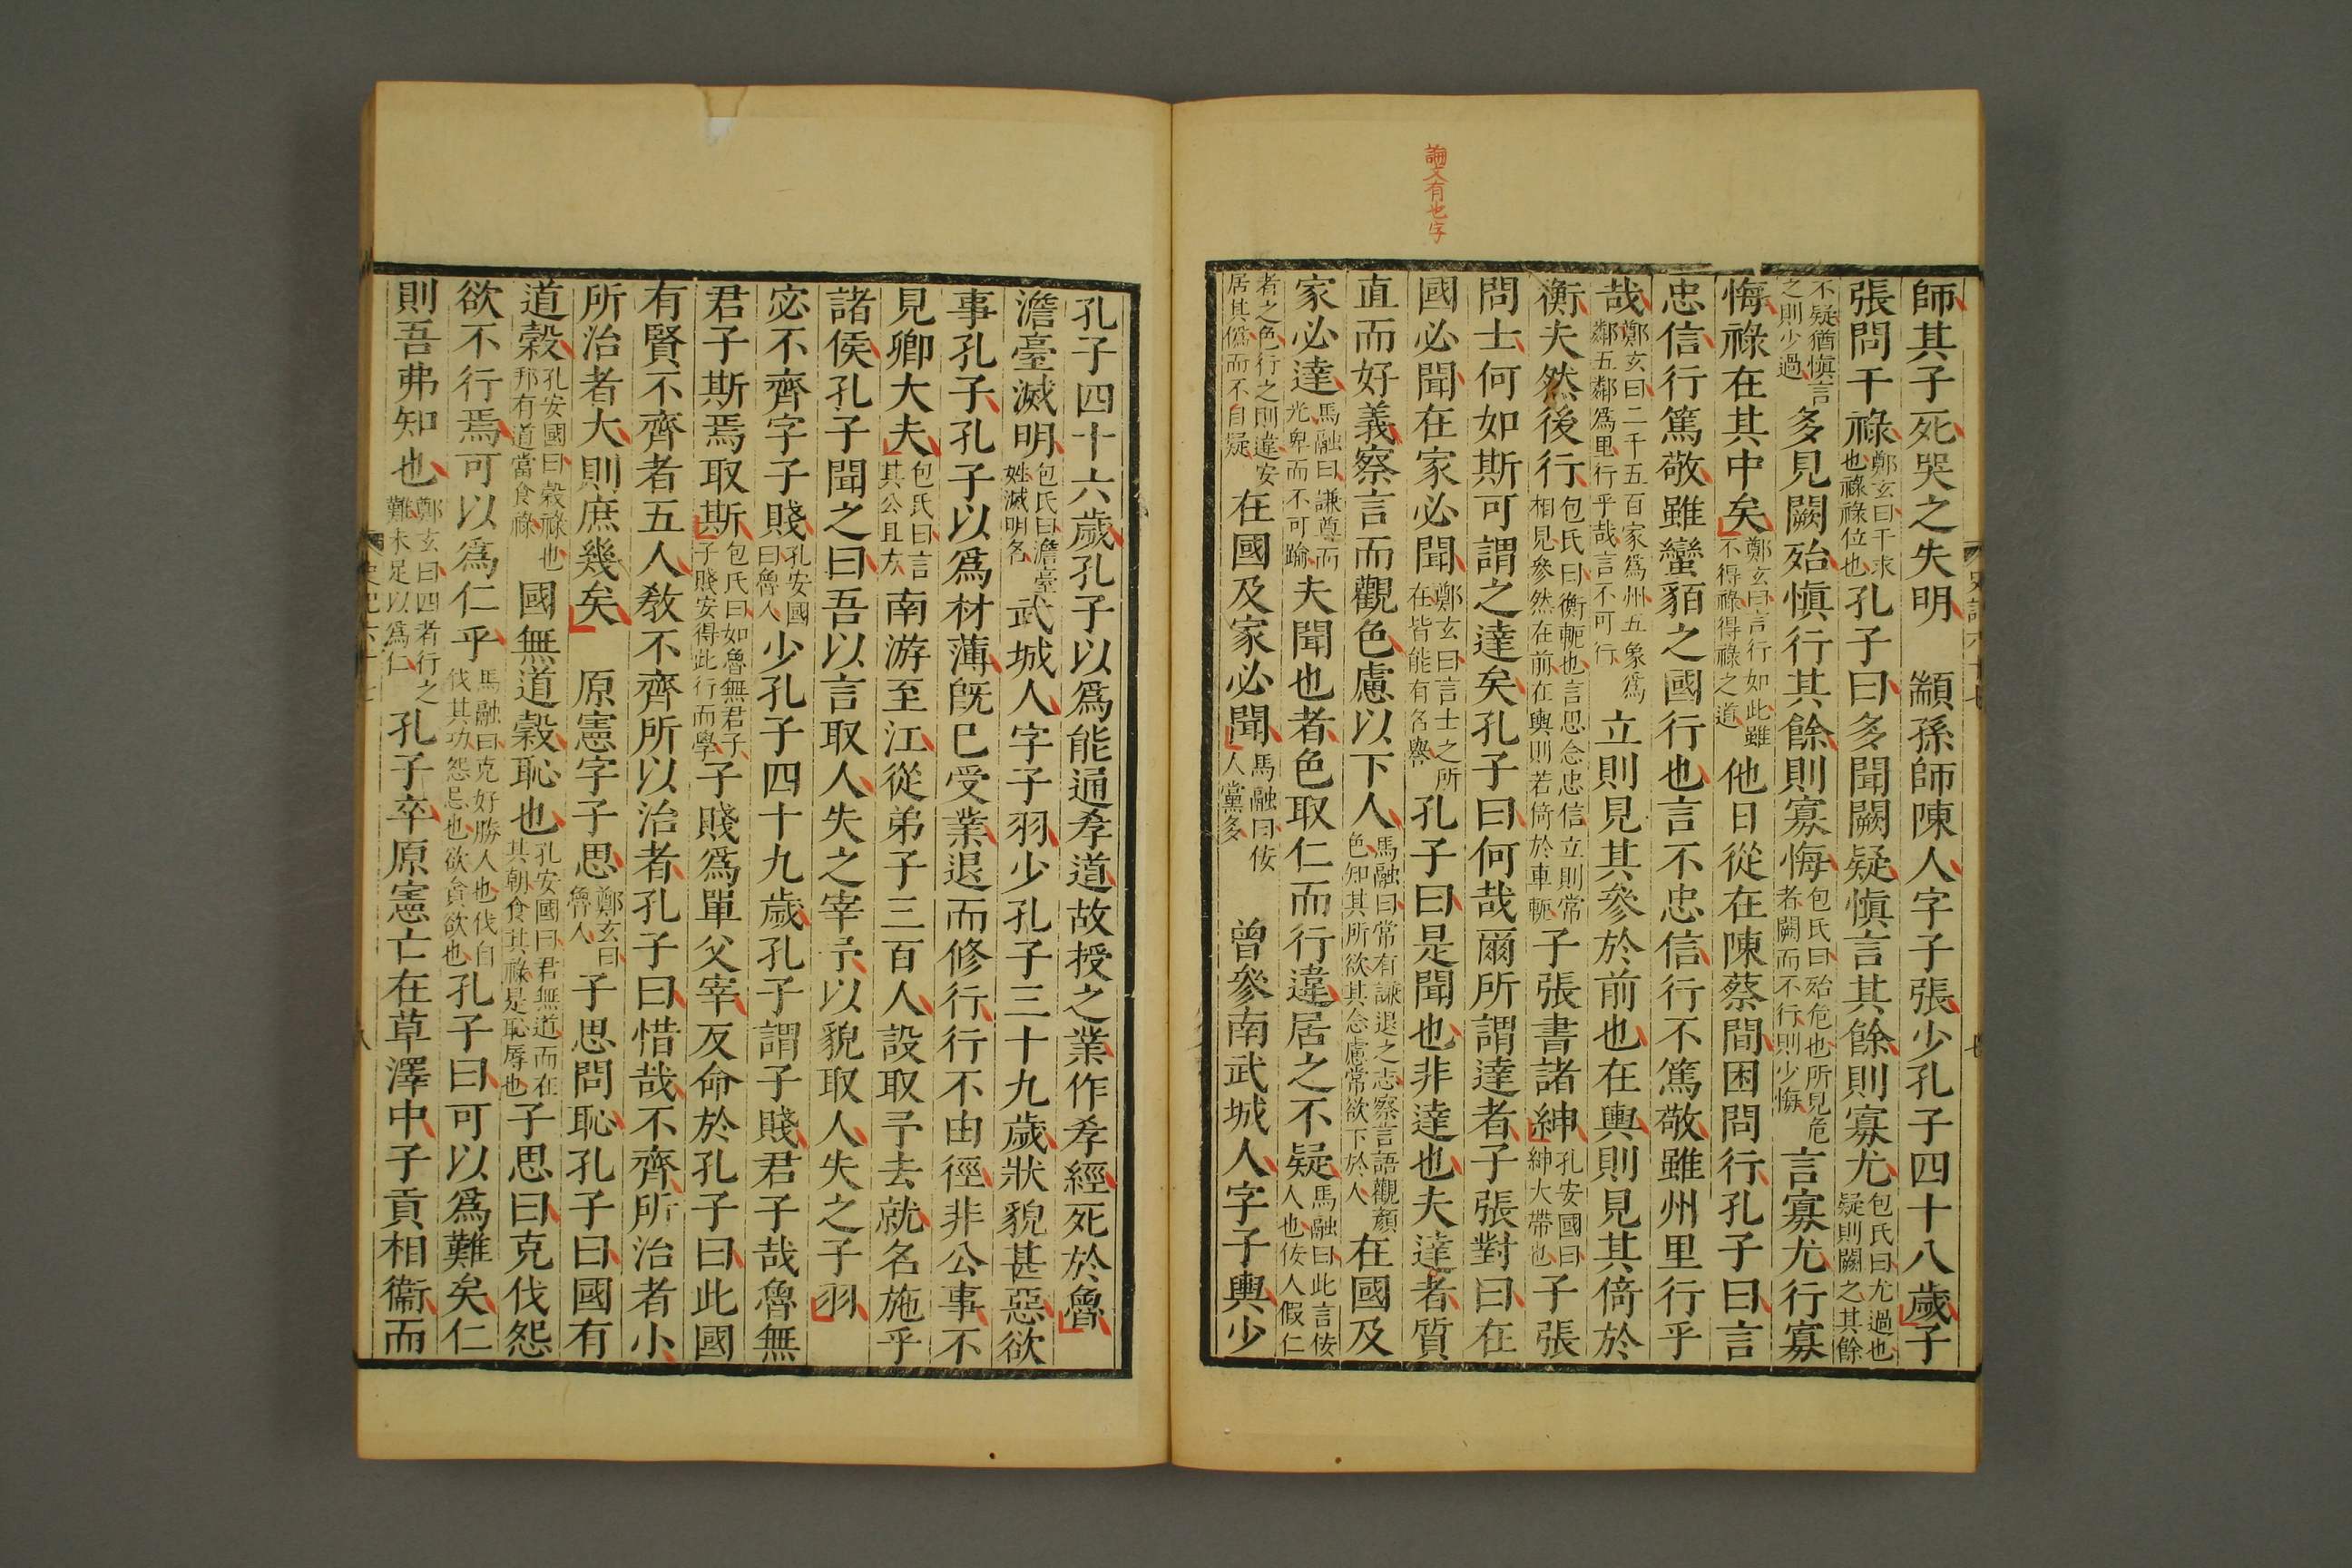 論文有也字
師其子死哭之失明　顓孫師陳人字子張少孔子四十八歲子
張問干祿鄭玄曰干求也祿祿位也孔子曰多聞闕疑愼言其餘則寡尤包氏曰尤過也疑則闕之其餘
不疑猶愼言之則少過多見闕殆愼行其餘則寡悔包氏曰殆危也所見危者闕而不行則少悔言寡尤行寡
悔祿在其中矣鄭玄曰言行如此雖不得祿得祿之道他日從在陳蔡間困問行孔子曰言
忠信行篤敬雖蠻貊之國行也言不忠信行不篤敬雖州里行乎
哉鄭玄曰二千五百家爲州五家爲鄰五鄰爲里行乎哉言不可行立則見其參於前也在輿則見其倚於
衡夫然後行包氏曰衡軛也言思念忠信立則常相見參然在前在輿則若倚於車軛子張書諸紳孔安國曰紳大帶也子張
問士何如斯可謂之達矣孔子曰何哉爾所謂達者子張對曰在
國必聞在家必聞鄭玄曰言士之所在皆能有名譽孔子曰是聞也非達也夫達者質
直而好義察言而觀色慮以下人馬融曰常有謙退之志察言語觀顏色知其所欲其念慮常欲下於人在國及
家必達馬融曰謙尊而光卑而不可踰夫聞也者色取仁而行違居之不疑馬融曰此言佞人也佞人假仁
者之色行之則違安居其僞而不自疑在國及家必聞馬融曰佞人黨多　曾參南武城人字子輿少
孔子四十六歲孔子以爲能通孝道故授之業作孝經死於魯
澹臺滅明包氏曰澹臺姓滅明名武城人字子羽少孔子三十九歲狀貌甚惡欲
事孔子孔子以爲材薄旣已受業退而修行行不由徑非公事不
見卿大夫包氏曰言其公且方南游至江從弟子三百人設取予去就名施乎
諸侯孔子聞之曰吾以言取人失之宰予以貌取人失之子羽
宓不齊字子賤孔安國曰魯人少孔子四十九歲孔子謂子賤君子哉魯無
君子斯焉取斯包氏曰如魯無君子子賤安得此行而學子賤爲單父宰反命於孔子曰此國
有賢不齊者五人敎不齊所以治者孔子曰惜哉不齊所治者小
所治者大則庶幾矣　原憲字子思鄭玄曰魯人子思問恥孔子曰國有
道穀孔安國曰穀祿也邦有道當食祿國無道穀恥也孔安國曰君無道而在其朝食其祿是恥辱也子思曰克伐怨
欲不行焉可以爲仁乎馬融曰克好勝人也伐自伐其功怨忌也欲貪欲也孔子曰可以爲難矣仁
則吾弗知也鄭玄曰四者行之難未足以爲仁孔子卒原憲亡在草澤中子貢相衞而